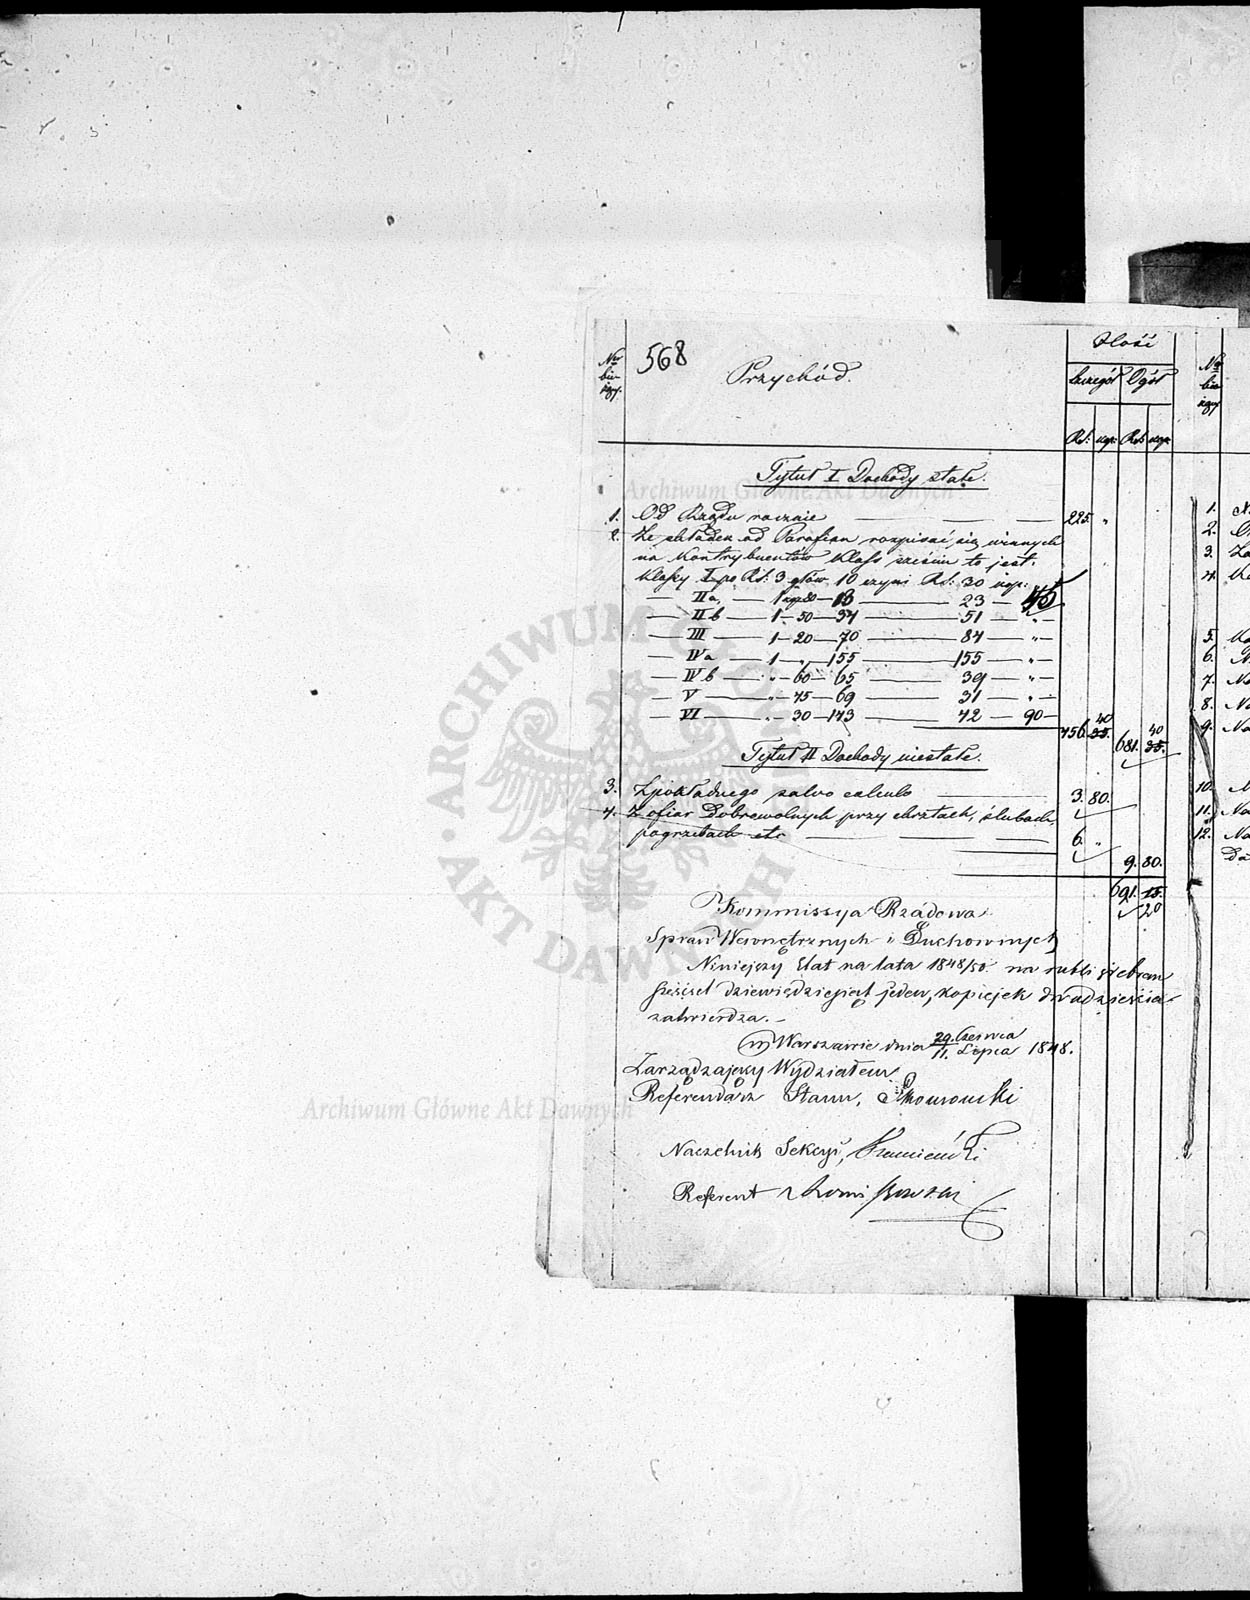 568
Nr bie-żący.
Przychód.
Ilość
Szczegół Ogół
Rs: kop: Rs: kop:
Tytuł I Dochody stałe.
1. Od Rządu rocznie — — — 225. "
2. Ze składek od Parafian rozpisać się winnych
na kontrybuentów klass sześciu to jest.
Klassy I po Rs: 3 głów 10 czyni Rs: 30 kop:
— IIa, — 1 kop 80 — 13 — 23 — 40
— IIb — 1 — 50 — 34 — 51 — " —
— III — 1 — 20 — 70 — 84 — " —
— IVa — 1 — " — 155 — 155 — " —
— IVb — " — 60 — 65 — 39 — " —
— V — " — 45 — 69 — 31 — " —
— VI — " — 30 — 143 — 42 — 90 —
456. 40 35. 681. 40 35.
Tytuł II Dochody niestałe.
3. Z pokładnego salvo calculo — 3. 80.
4. Z ofiar Dobrowolnych przy chrztach, ślubach,
pogrzebach etc — — — 6. "
9. 80.
691. 15.
20
Kommissya Rządowa
Spraw Wewnętrznych i Duchownych
Niniejszy Etat na lata 1848/50. na rubli srebrem
sześćset dziewięćdziesiąt jeden, kopiejek dwadzieścia
zatwierdza. —
w Warszawie dnia 29. Czerwca / 11. Lipca 1848.
Zarządzający Wydziałem
Referendarz Stanu,
Naczelnik Sekcyi,
Referent
Nr bie-żący
1.
2.
3.
4.
5.
6.
7.
8.
9.
10.
11.
12.
Archiwum Główne Akt Dawnych
Archiwum Główne Akt Dawnych
ARCHIWUM GŁÓWNE AKT DAWNYCH